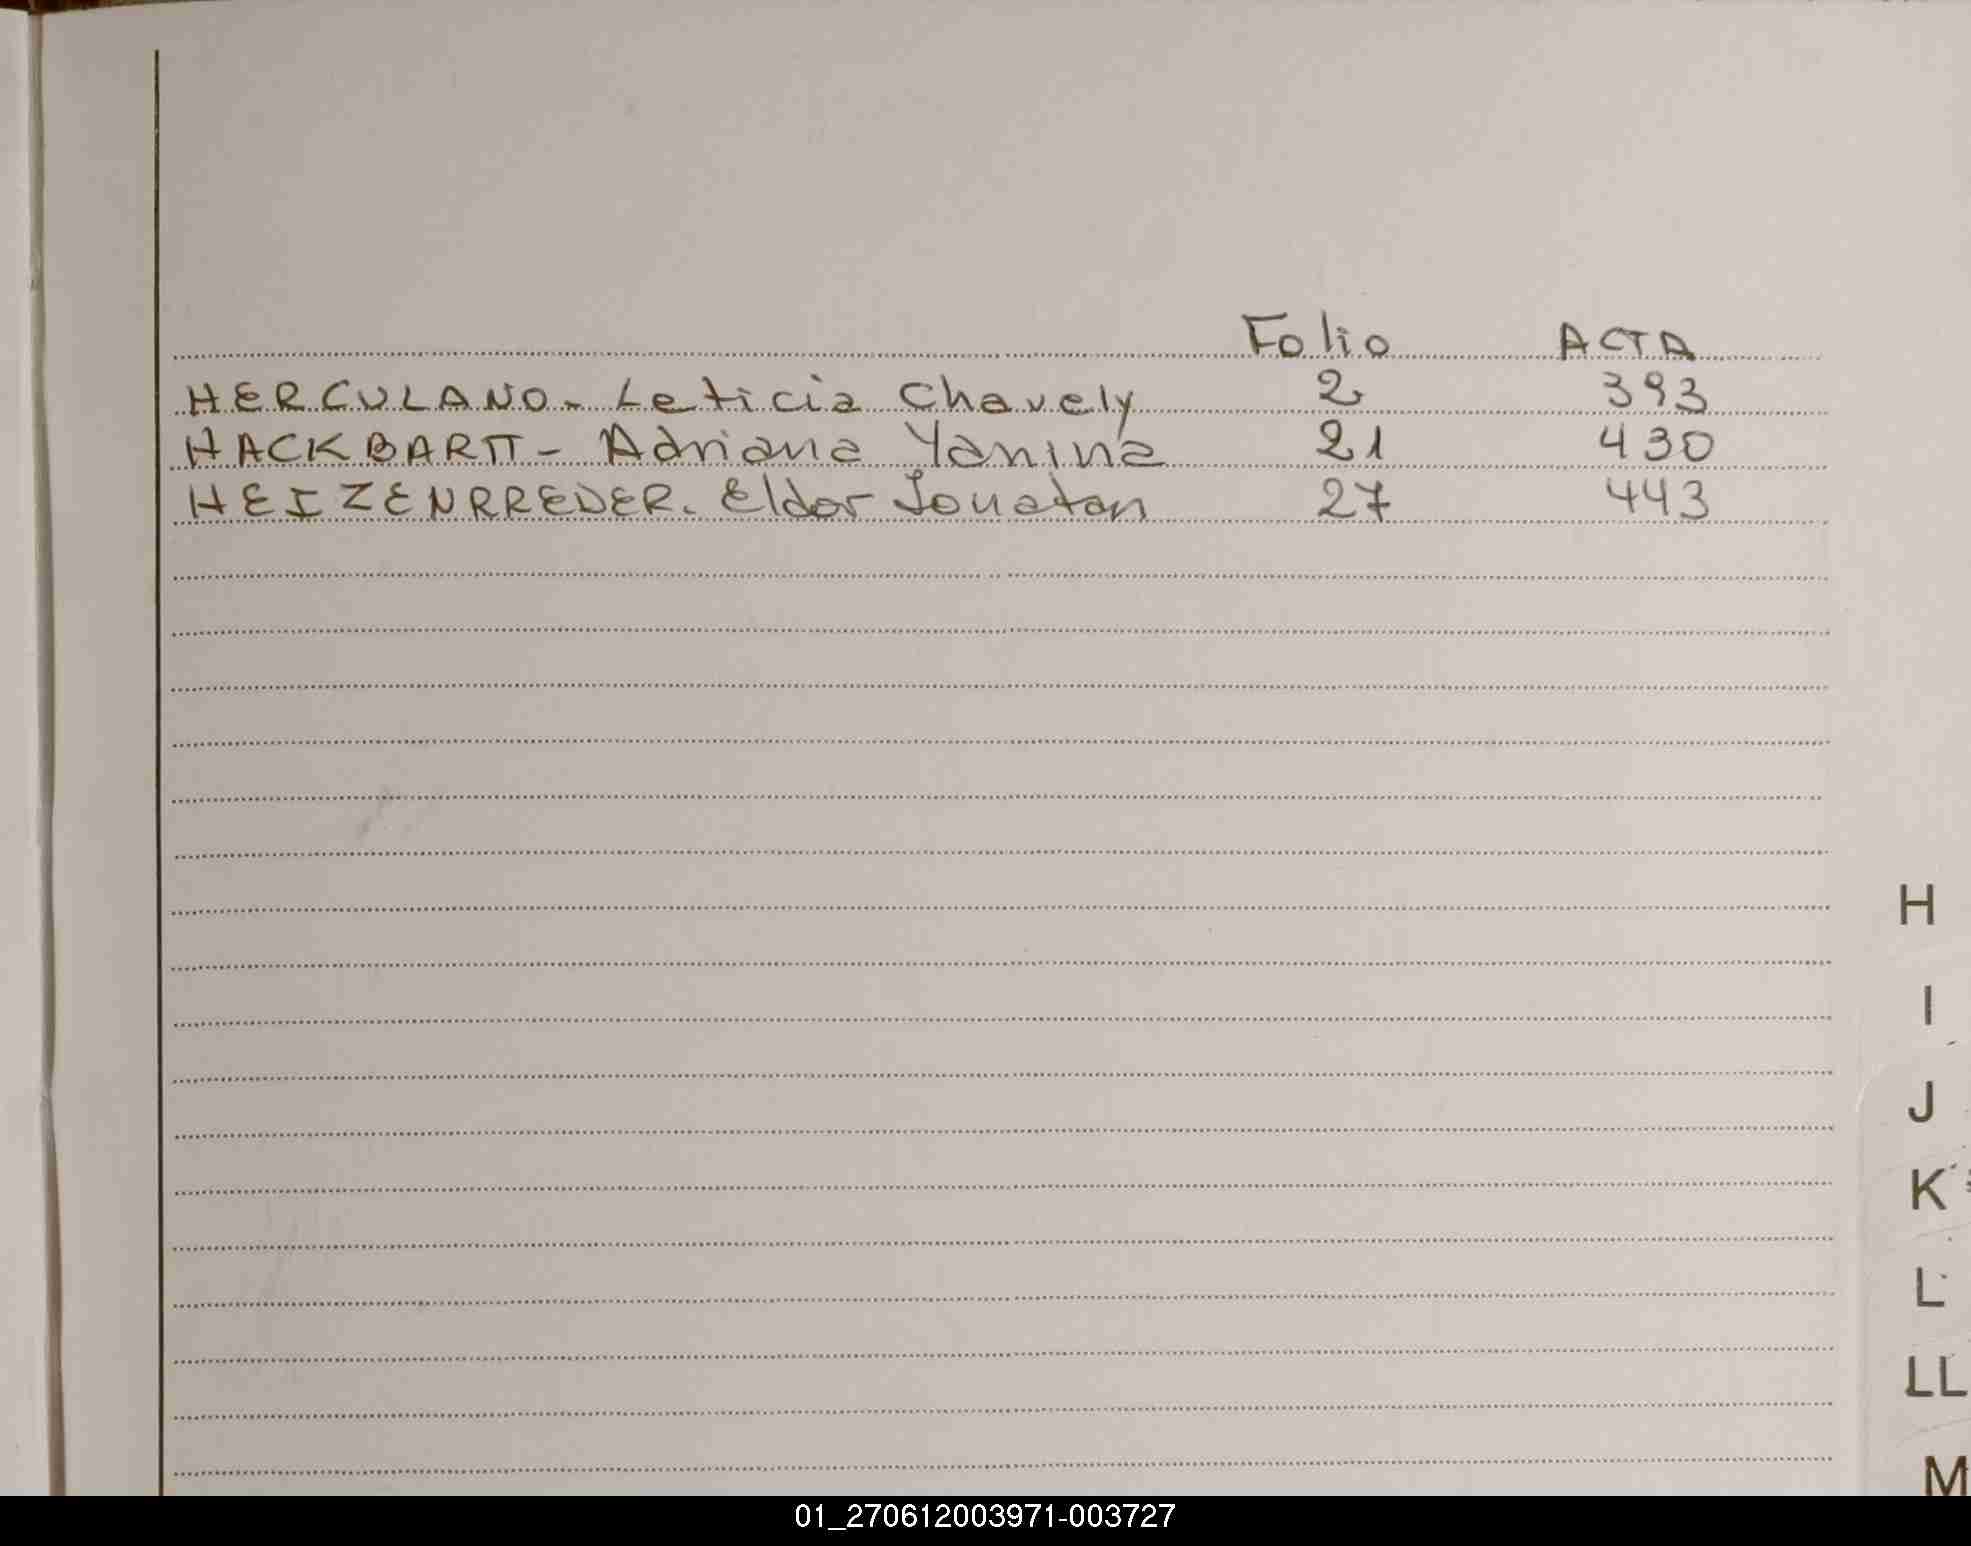 Folio ACTA
HERCULANO - Leticia Chavely 2 393
HACKBARTT - Adriana Yanina 21 430
HEIZENRREDER. Eldor Jonatan 27 443
H
I
J
K
L
LL
M
01_270612003971-003727